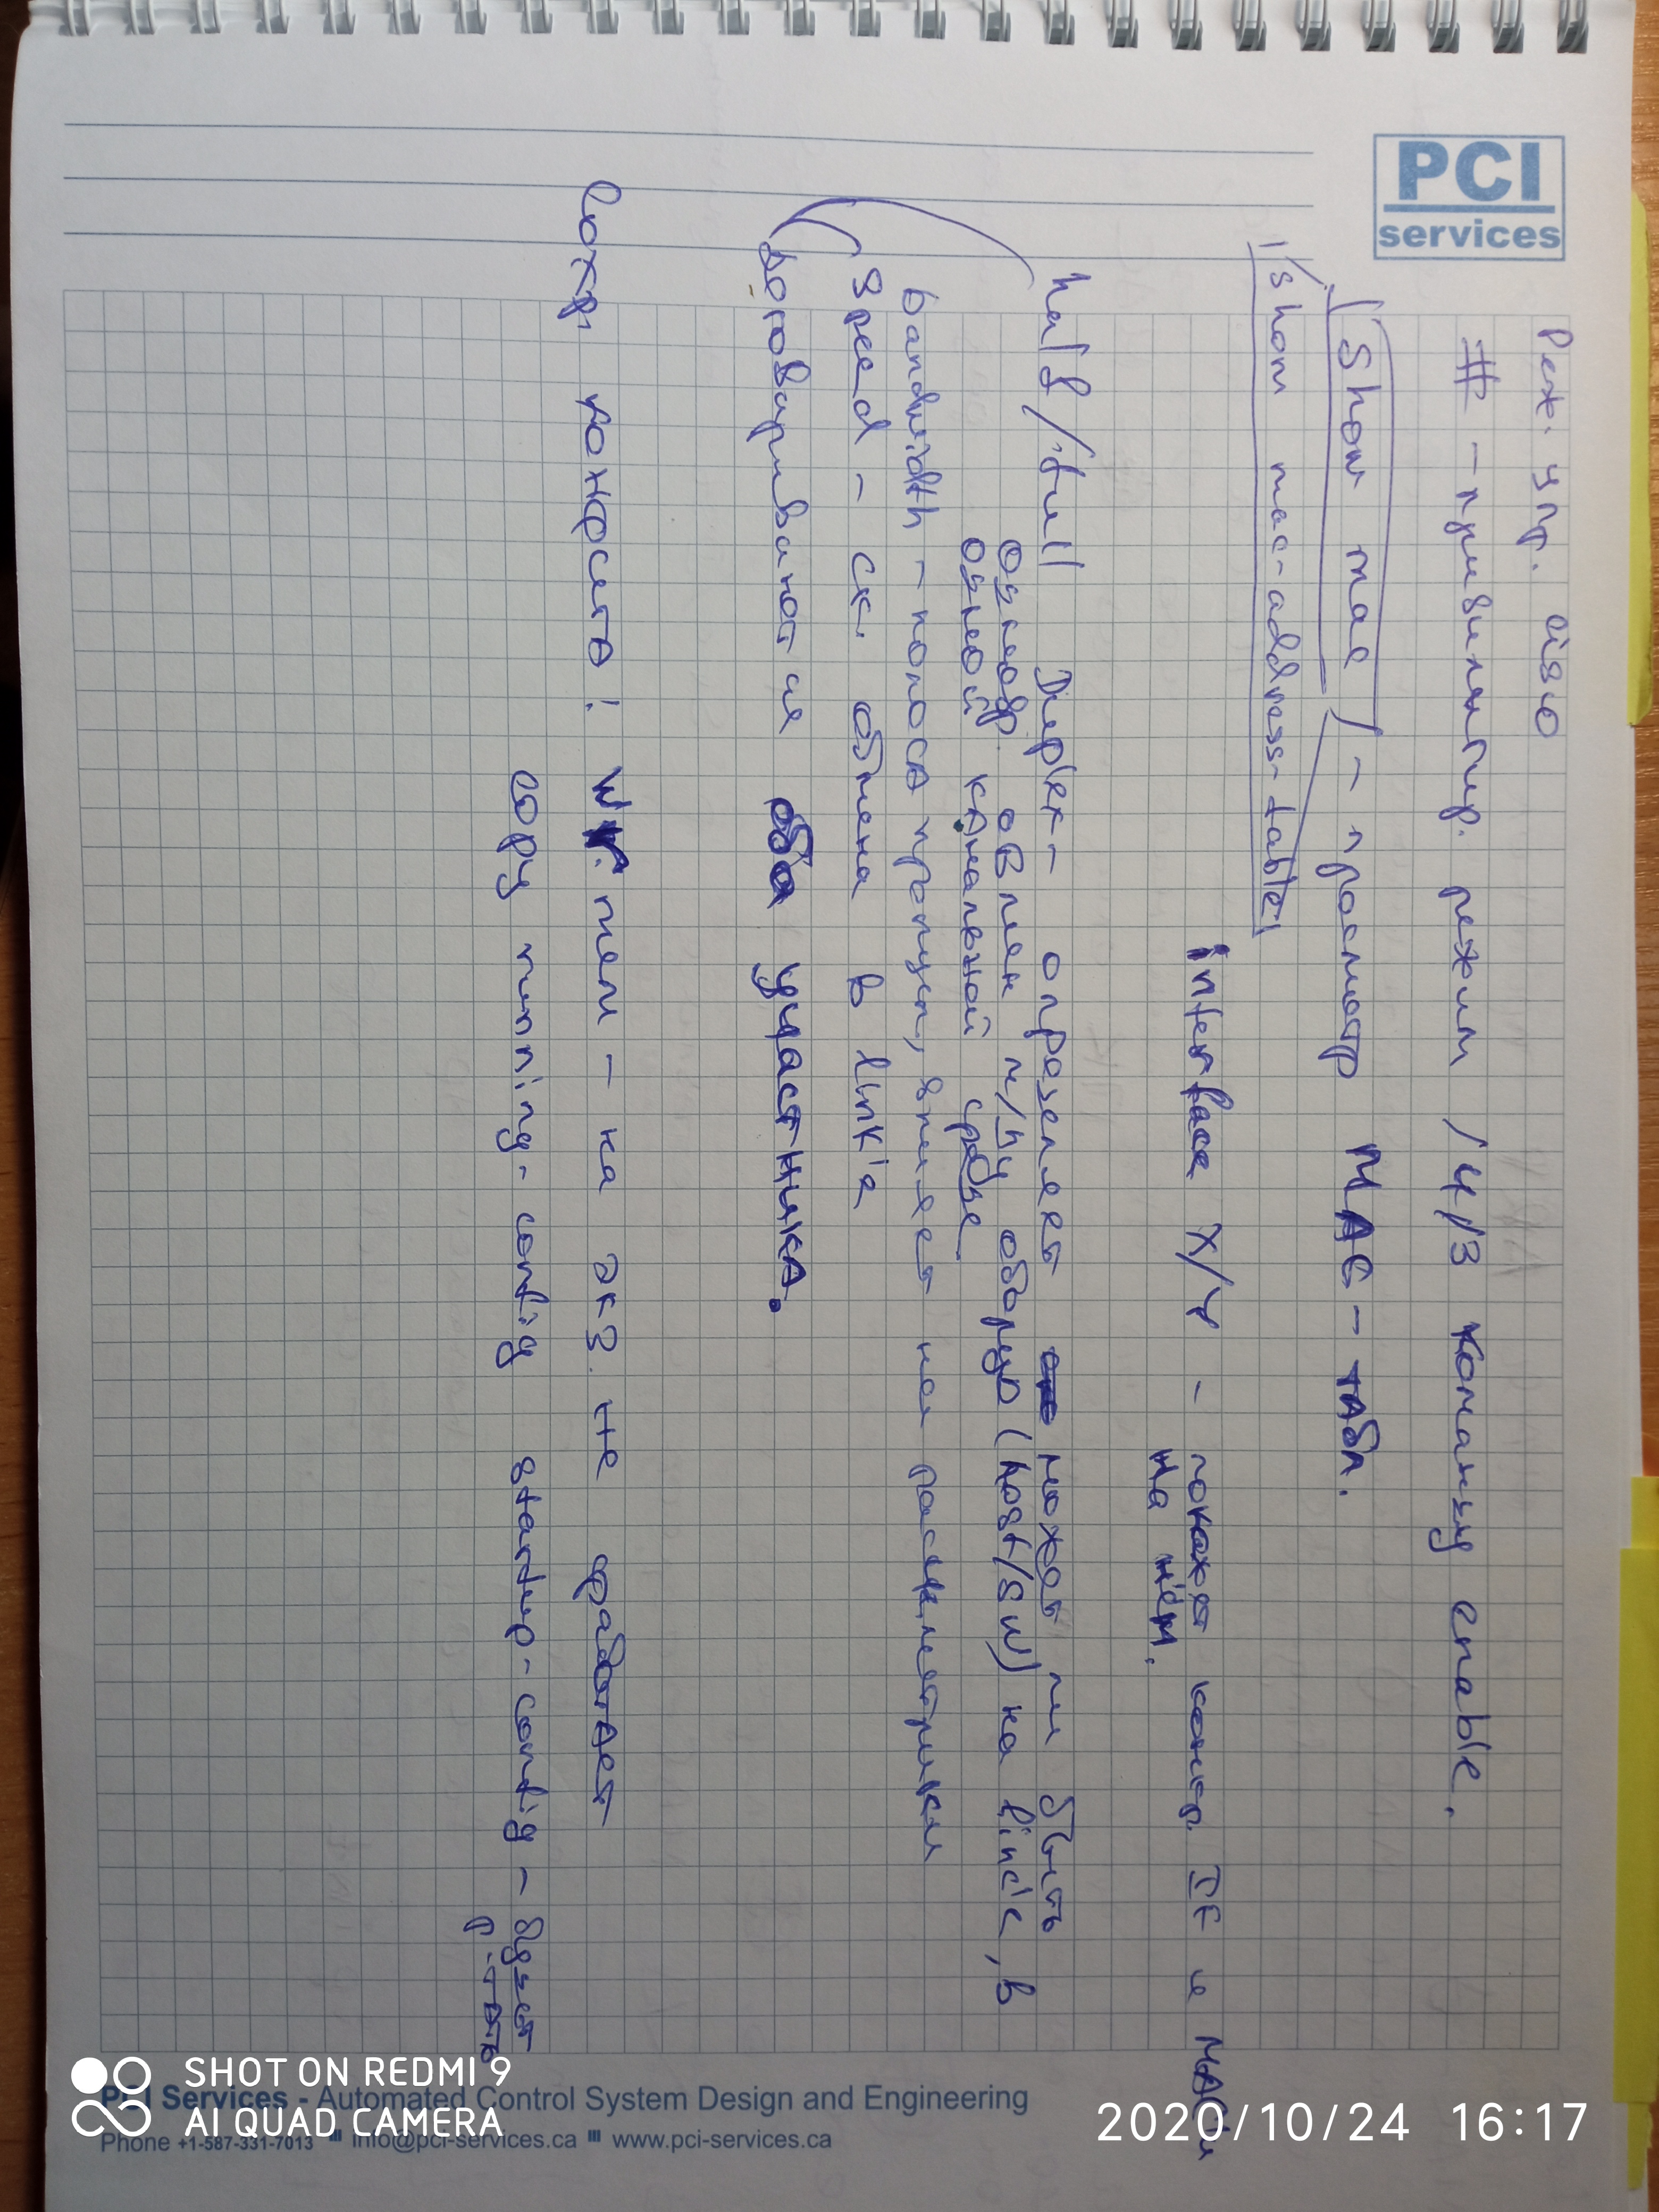 PCI
services
Реж. упр. cisco
# - привилегир. режим /ч/з команду enable.
show mac - просмотр MAC - табл.
show mac-address-table
interface X/Y - покажет конкр. IF и MAC'и
на нём.
half/full Duplex - определяет может ли быть
одновр. обмен м/ду оборуд (host/SW) на linc'е, в
одной канальной среде
bandwidth - полоса пропуск, влияет на расч. метрики
Speed - ск. обмена в link'е
договариваются оба участника.
Сохр. конфига! wr. mem - на экз. не сработает
copy running-config startup-config - будет
р-тать
PCI Services - Automated Control System Design and Engineering
Phone +1-587-331-7013 info@pci-services.ca www.pci-services.ca
2020/10/24 16:17
SHOT ON REDMI 9
AI QUAD CAMERA